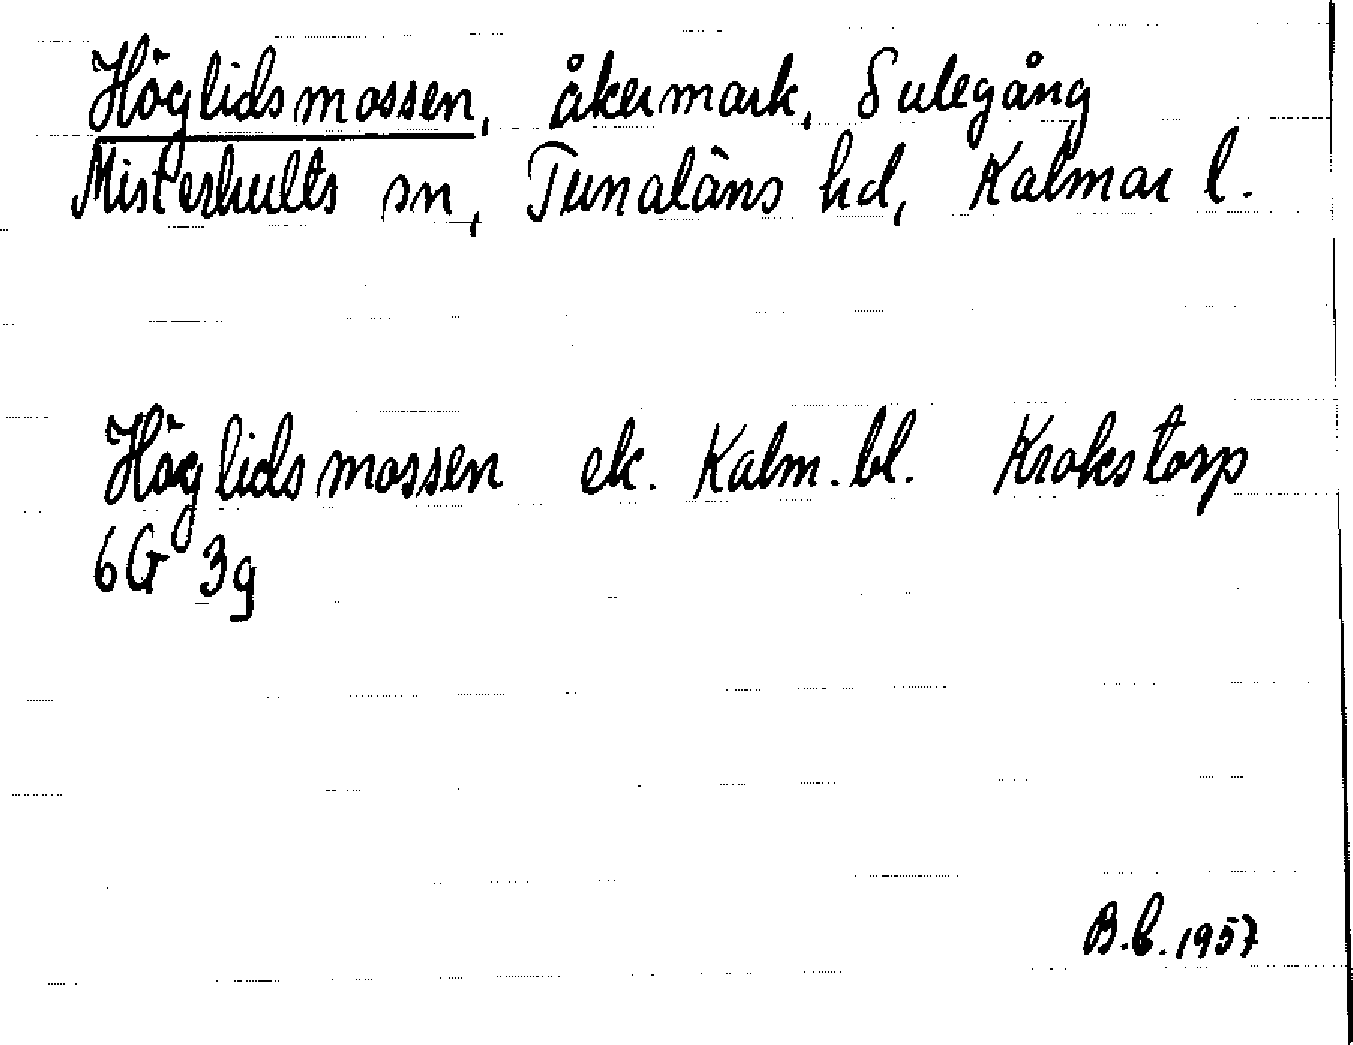 Höglidsmossen, åkermark, Sulegång
Misterhults sn, Tunaläns hd, Kalmar l.
Höglidsmossen ek. Kalm. bl. Krokstorp
6G 3g
B.L. 1957